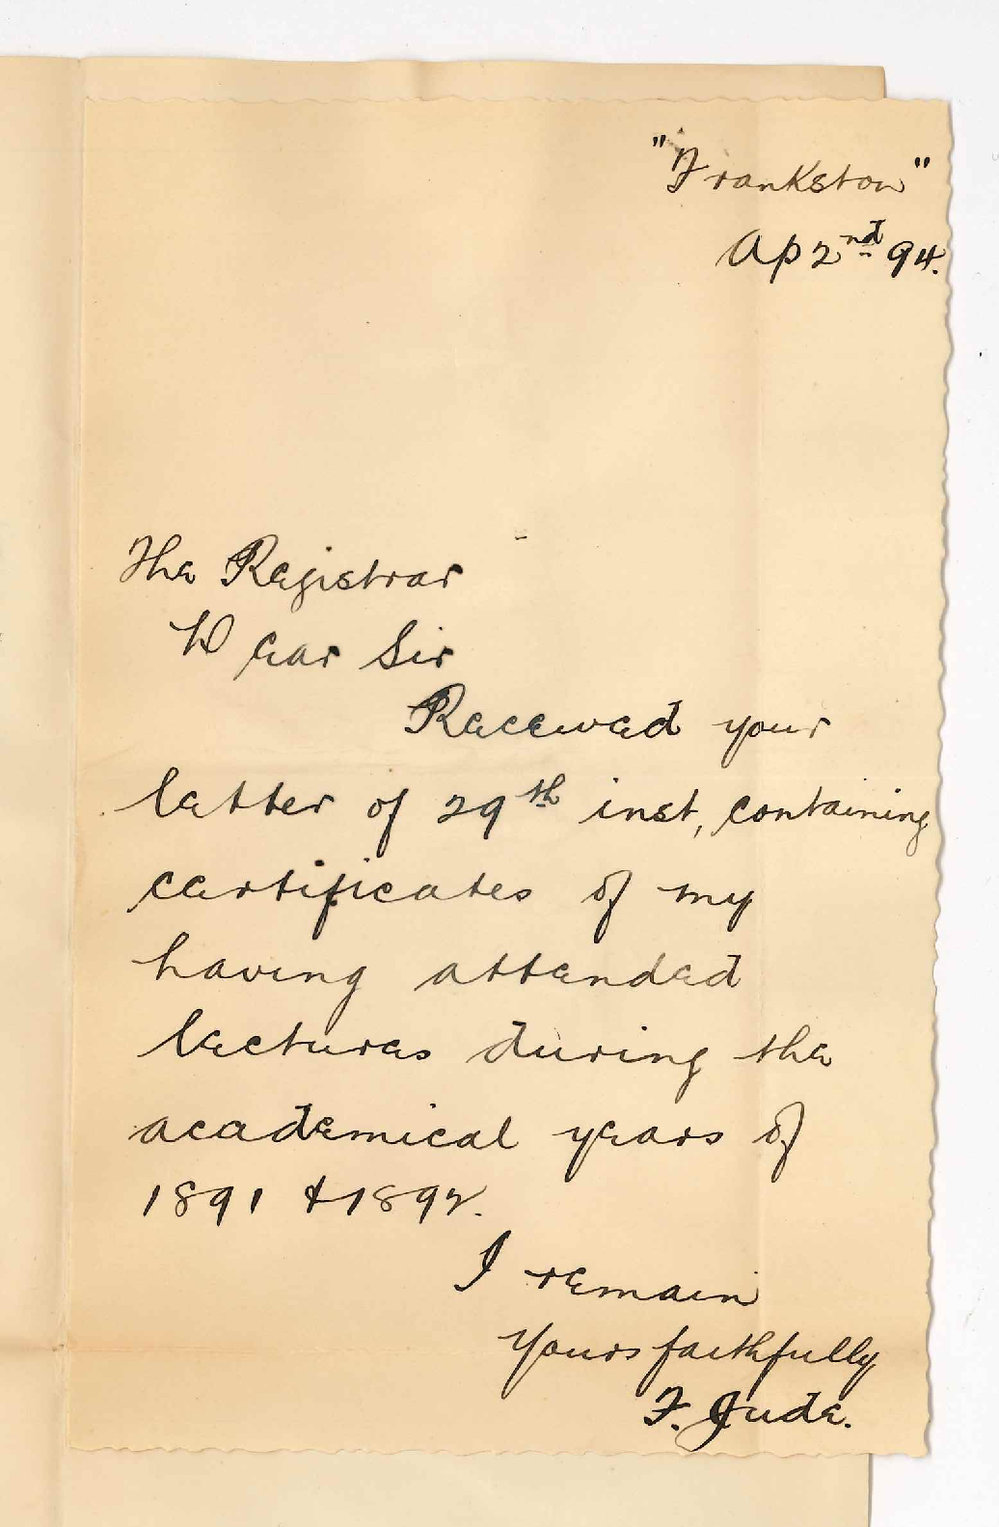 "Frankston"
Ap 2nd 94.
The Registrar
Dear Sir
Received your
letter of 29th inst, containing
certificates of my
having attended
lectures during the
academical years of
1891 & 1892.
I remain
Yours faithfully
F. Jude.